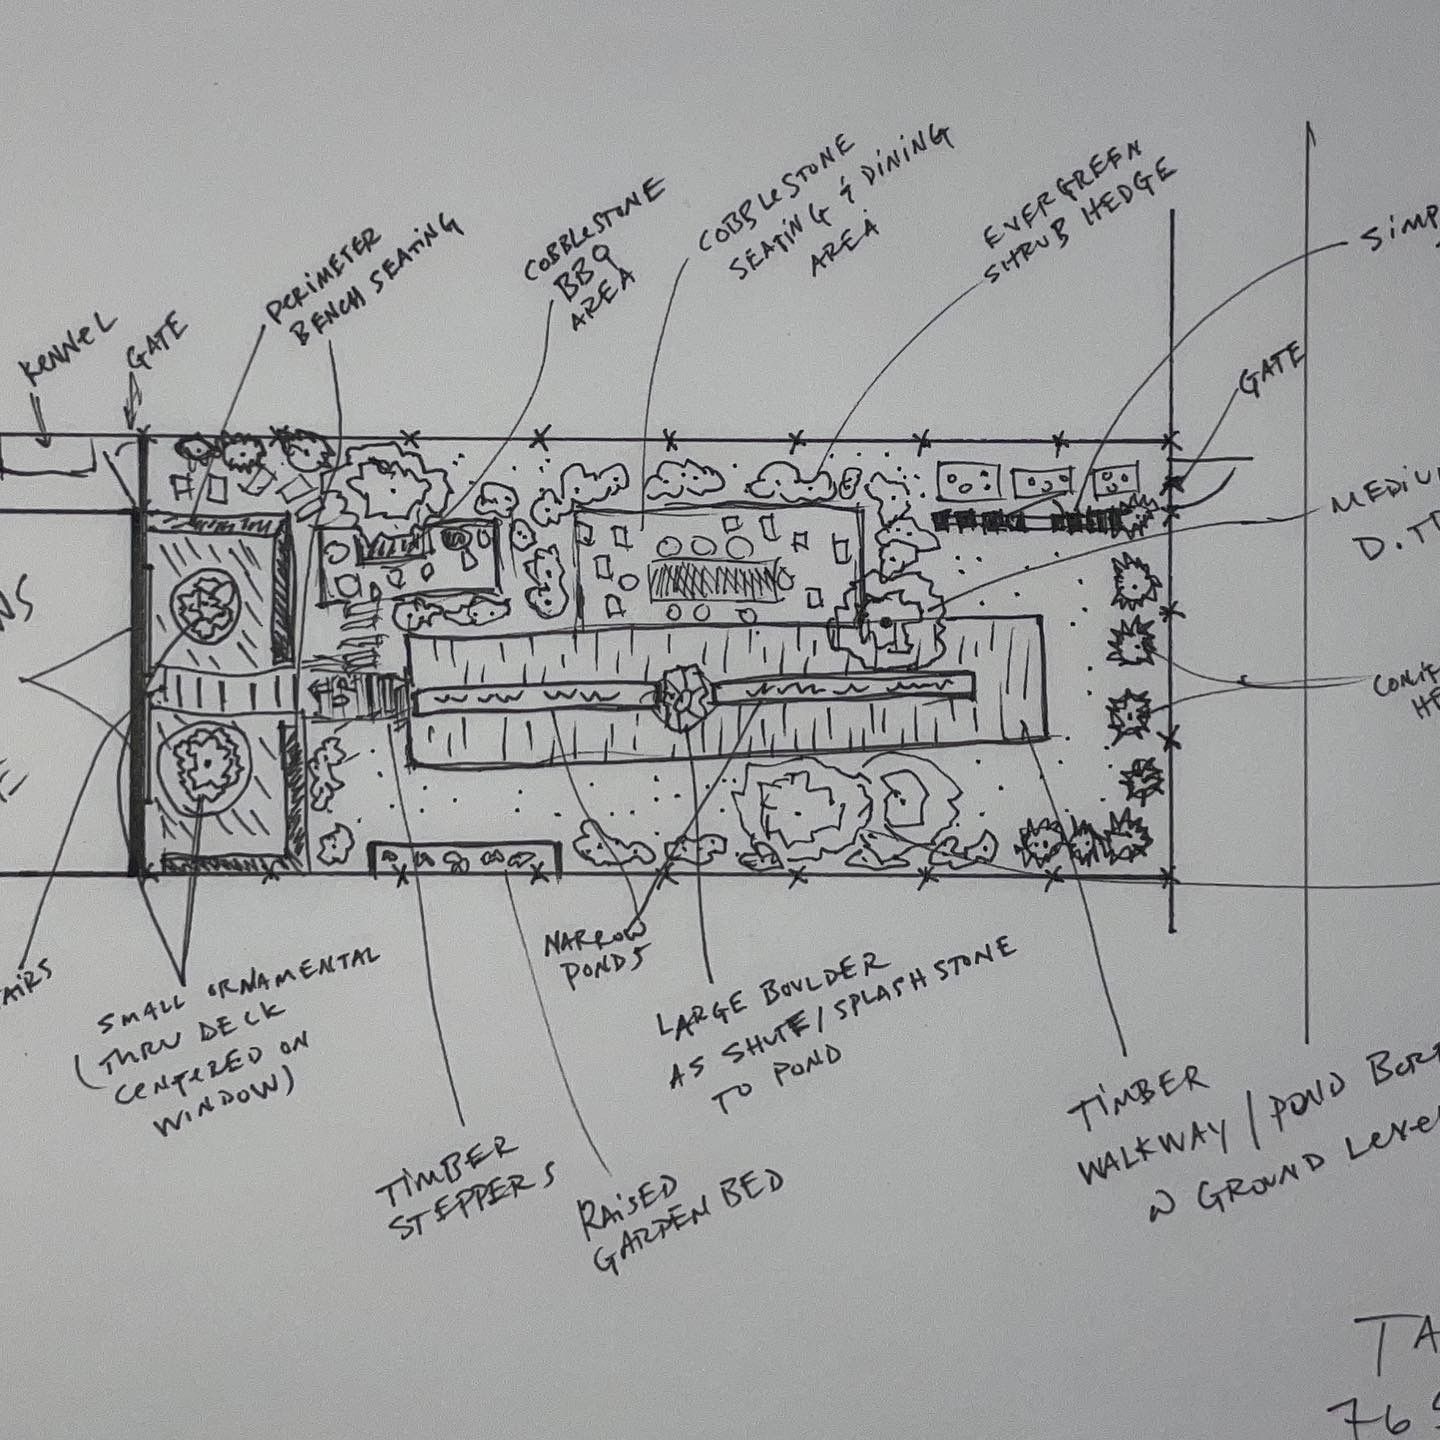 KENNEL
GATE
PERIMETER
BENCH SEATING
COBBLESTONE
BBQ
AREA
COBBLESTONE
SEATING & DINING
AREA
EVERGREEN
SHRUB HEDGE
SIMP
GATE
MEDIU
D.TR
CONIF
HE
NS
E
AIRS
SMALL ORNAMENTAL
(THRU DECK
CENTERED ON
WINDOW)
TIMBER
STEPPERS
RAISED
GARDEN BED
NARROW
PONDS
LARGE BOULDER
AS SHUTE/SPLASH STONE
TO POND
TIMBER
WALKWAY/POND BOR
@ GROUND LEVE
TA
76 S